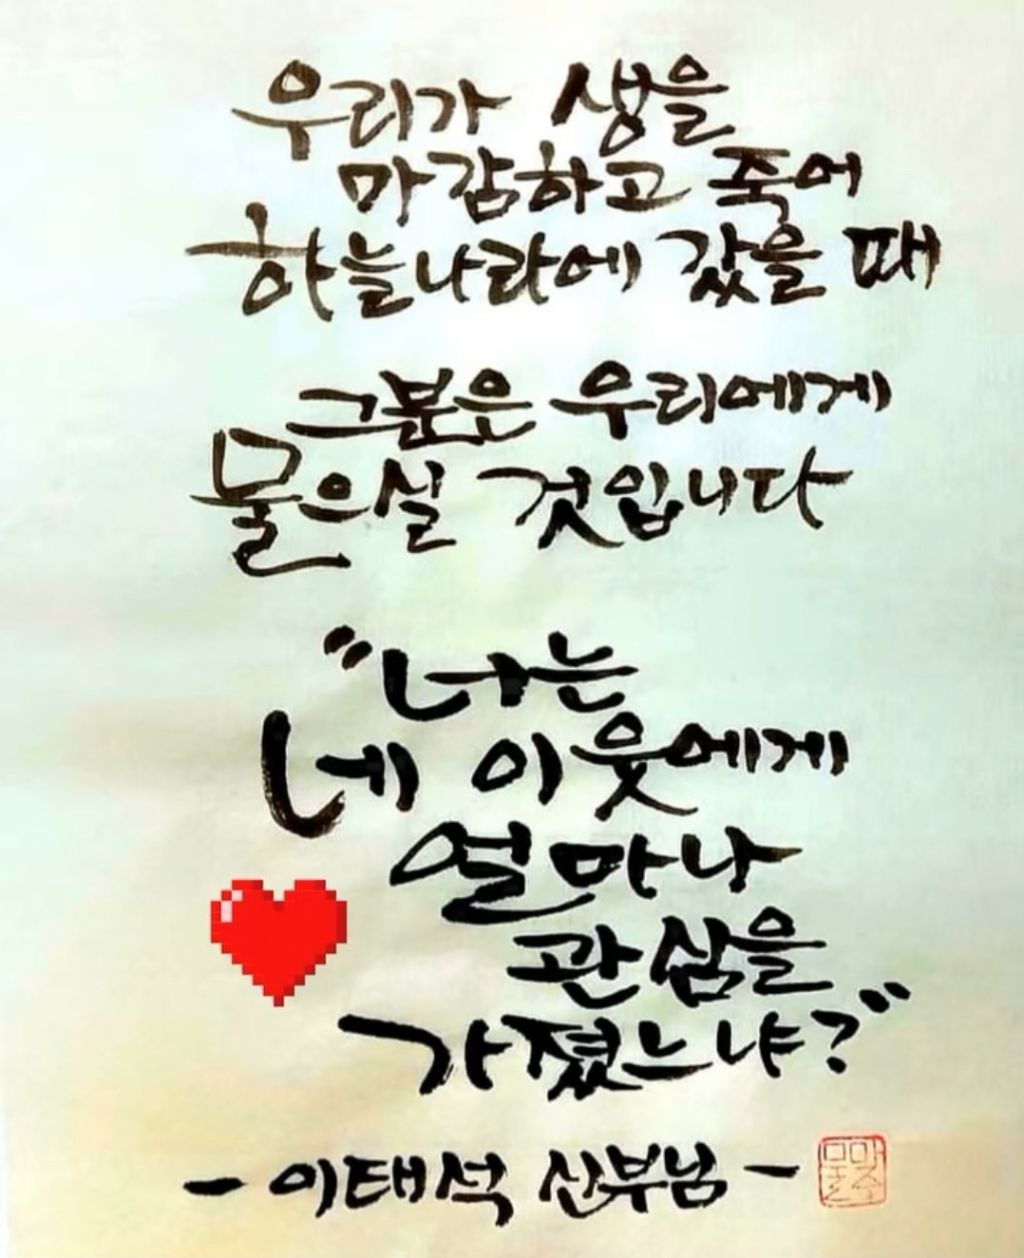 우리가 생을
마감하고 죽어
하늘나라에 갔을 때
그분은 우리에게
물으실 것입니다
"너는
네 이웃에게
얼마나
관심을
가졌느냐?"
- 이태석 신부님 -